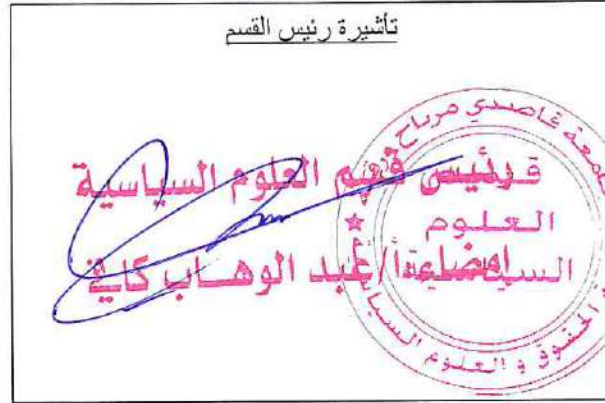 تأشيرة رئيس القسم
رئيس قسم العلوم السياسية
إمضاء: أ/عبد الوهاب كافي
جامعة قاصدي مرباح
العلوم
السياسية
الحقوق و العلوم السيا